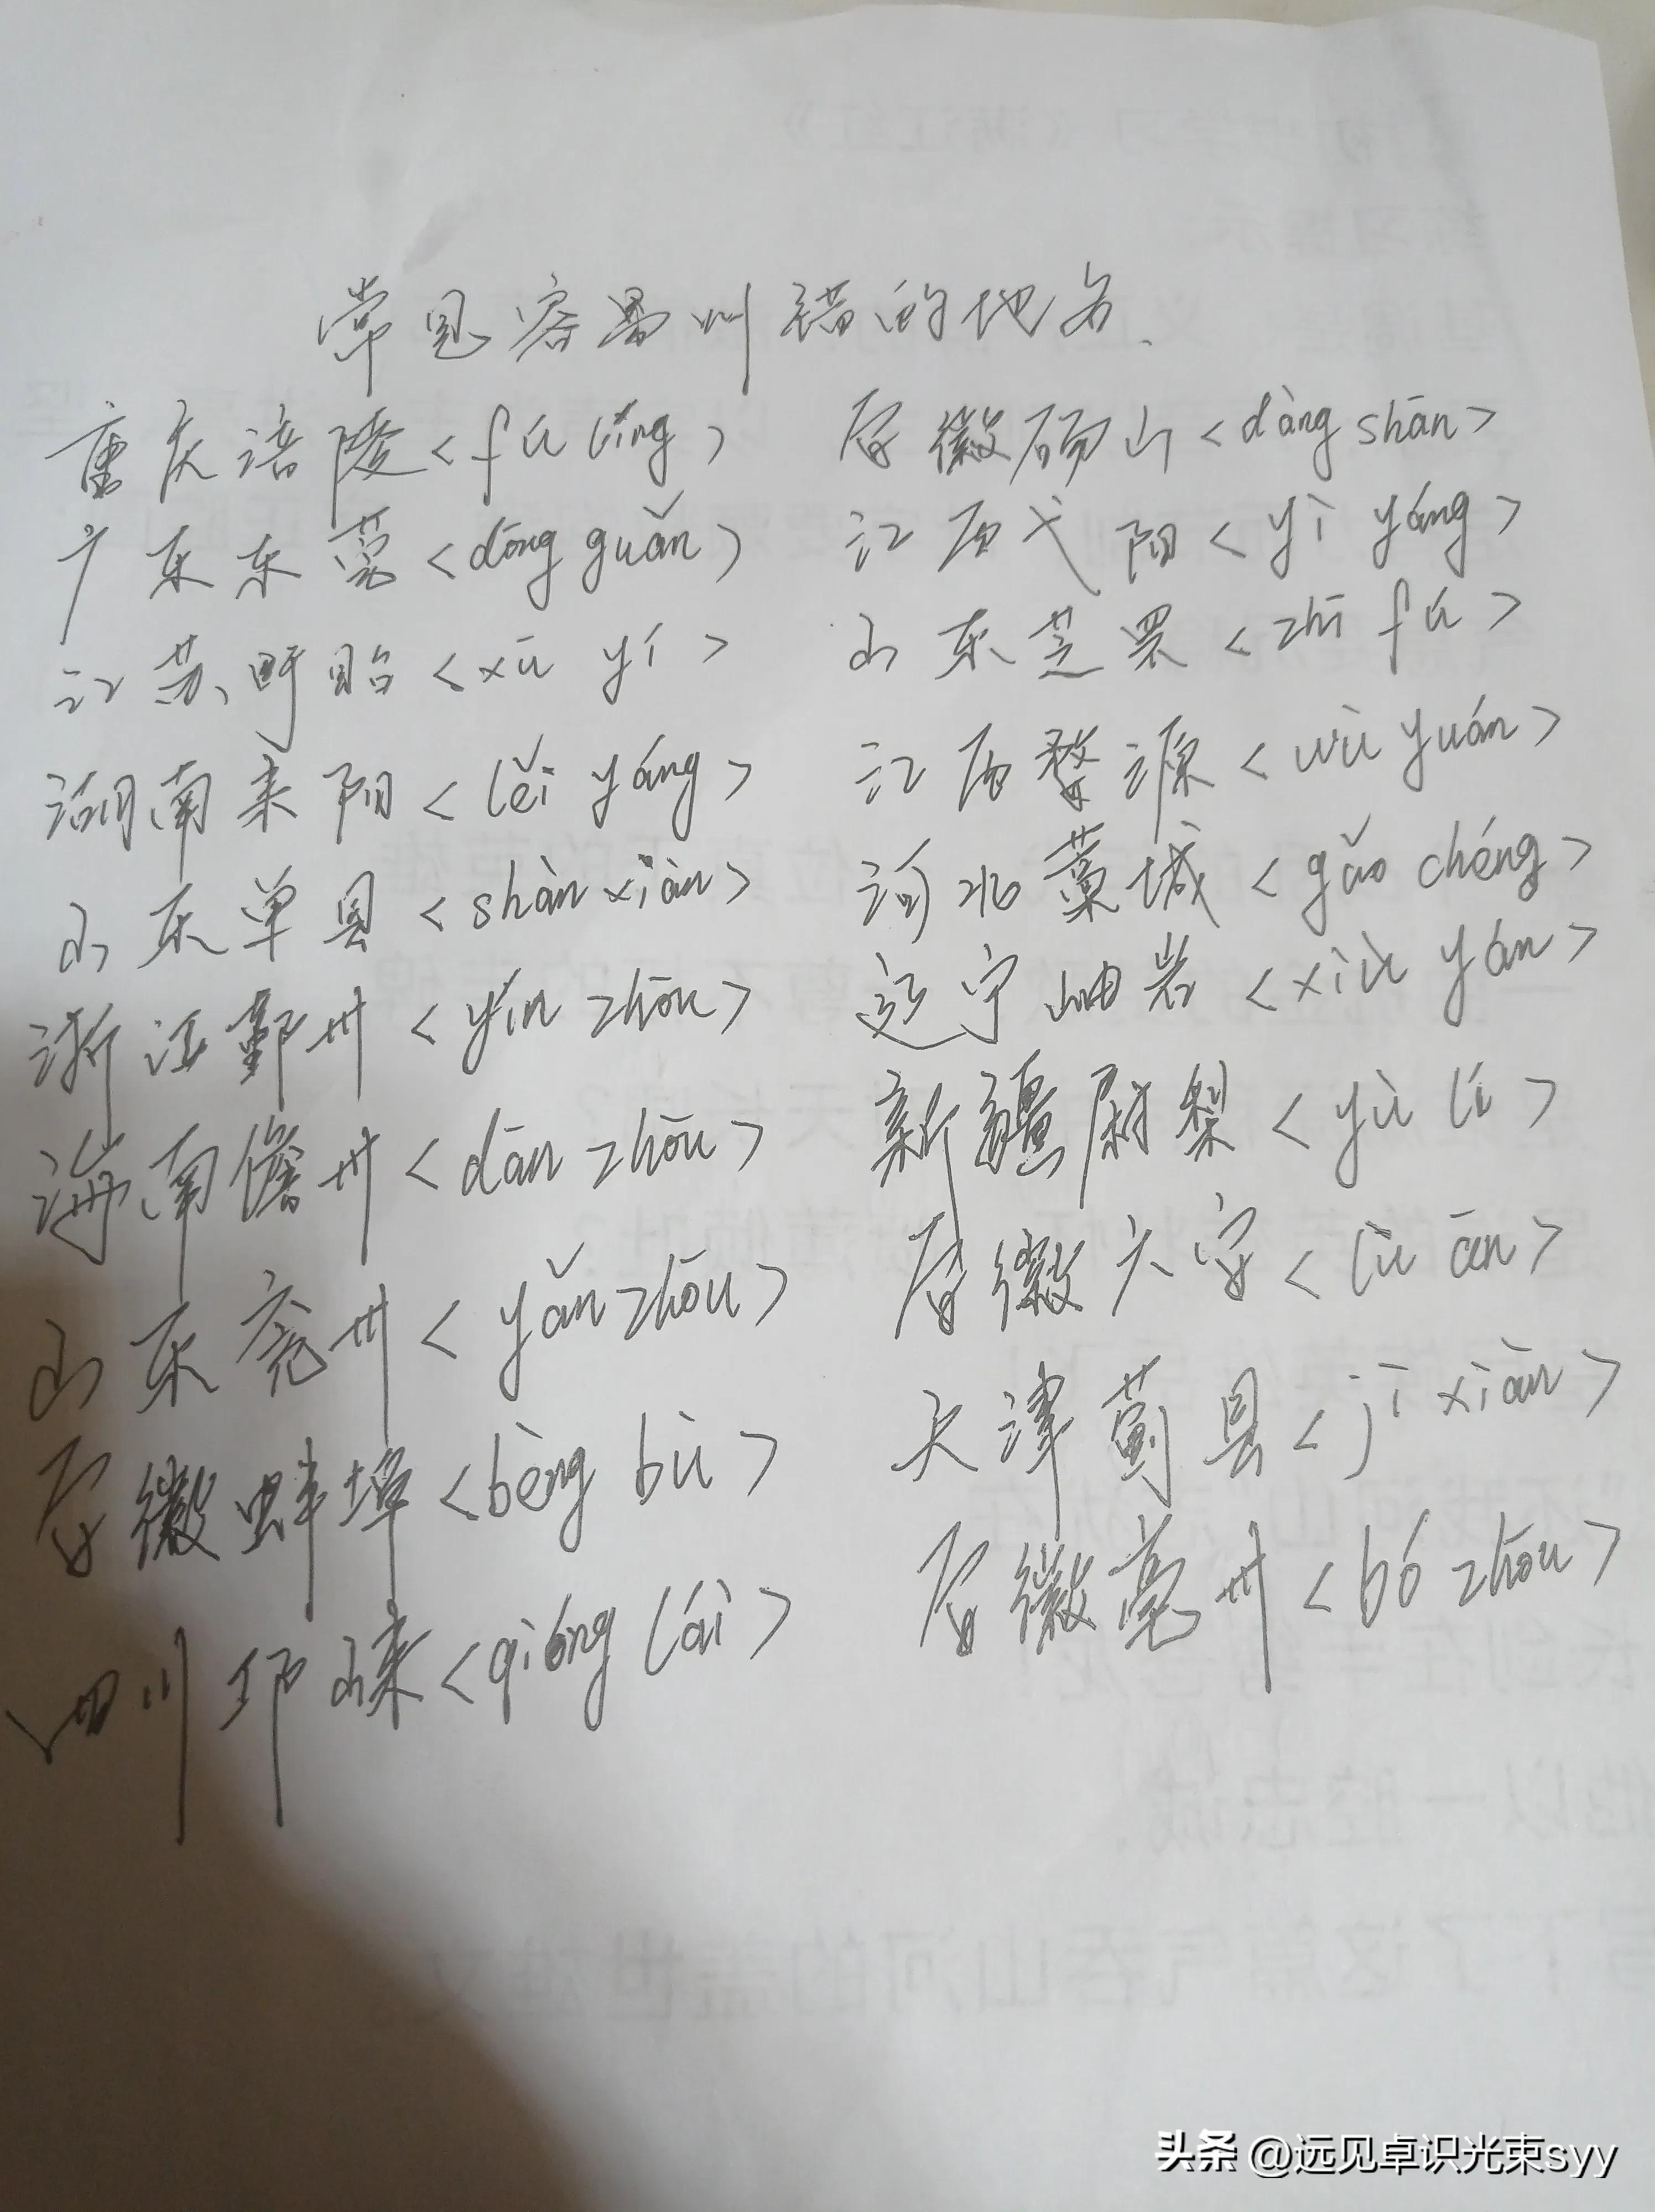 常见容易叫错的地名.
重庆涪陵<fú líng>
广东东莞<dōng guǎn>
江苏盱眙<xū yí>
湖南耒阳<lěi yáng>
山东单县<shàn xiàn>
浙江鄞州<yín zhōu>
海南儋州<dān zhōu>
山东兖州<yǎn zhōu>
安徽蚌埠<bèng bù>
四川邛崃<qióng lái>
安徽砀山<dàng shān>
江西弋阳<yì yáng>
山东芝罘<zhī fú>
江西婺源<wù yuán>
河北藁城<gǎo chéng>
辽宁岫岩<xiù yán>
新疆尉犁<yù lí>
安徽六安<lù ān>
天津蓟县<jì xiàn>
安徽亳州<bó zhōu>
头条 @远见卓识光束syy